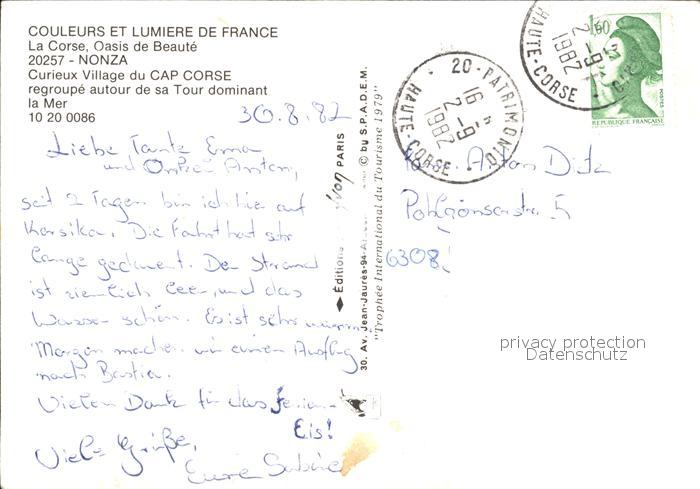 COULEURS ET LUMIERE DE FRANCE
La Corse, Oasis de Beauté
20257 - NONZA
Curieux Village du CAP CORSE
regroupé autour de sa Tour dominant
la Mer
10 20 0086
30.8.82
Liebe Tante Erna
und Onkel Anton,
seit 2 Tagen bin ich hier auf
Korsika. Die Fahrt hat sehr
lange gedauert. Der Strand
ist ziemlich leer, und das
Wasser schön. Es ist sehr warm
Morgen machen wir einen Ausflug
nach Bastia.
Vielen Dank für das Ferien-
Eis!
Viele Grüße,
Eure Sabine
Editions yvon PARIS
30. Av. Jean-Jaurès-94-
© by S.P.A.D.E.M.
"Trophée International du Tourisme 1979"
20 - PATRIMONIO
16 H
2 - 9
1982
HAUTE-CORSE
2 - 9
1982
HAUTE-CORSE
1,60
POSTES
REPUBLIQUE FRANÇAISE
Anton
5
6308
privacy protection
Datenschutz